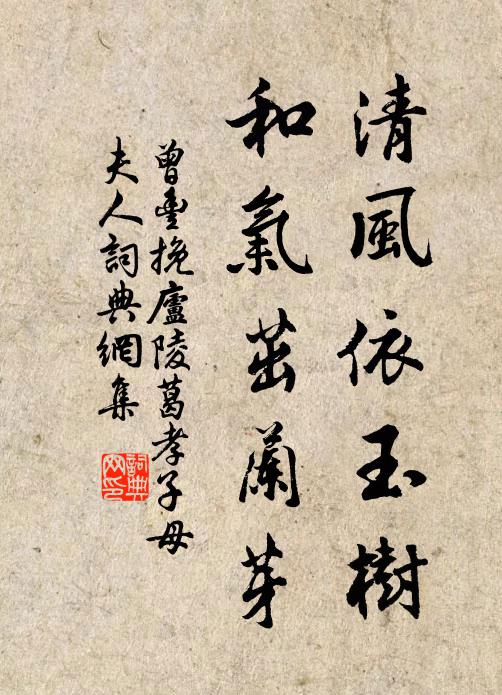 清風依玉樹
和氣茁蘭芽
曾豐挽廬陵葛孝子母
夫人詞典網集
詞典網印